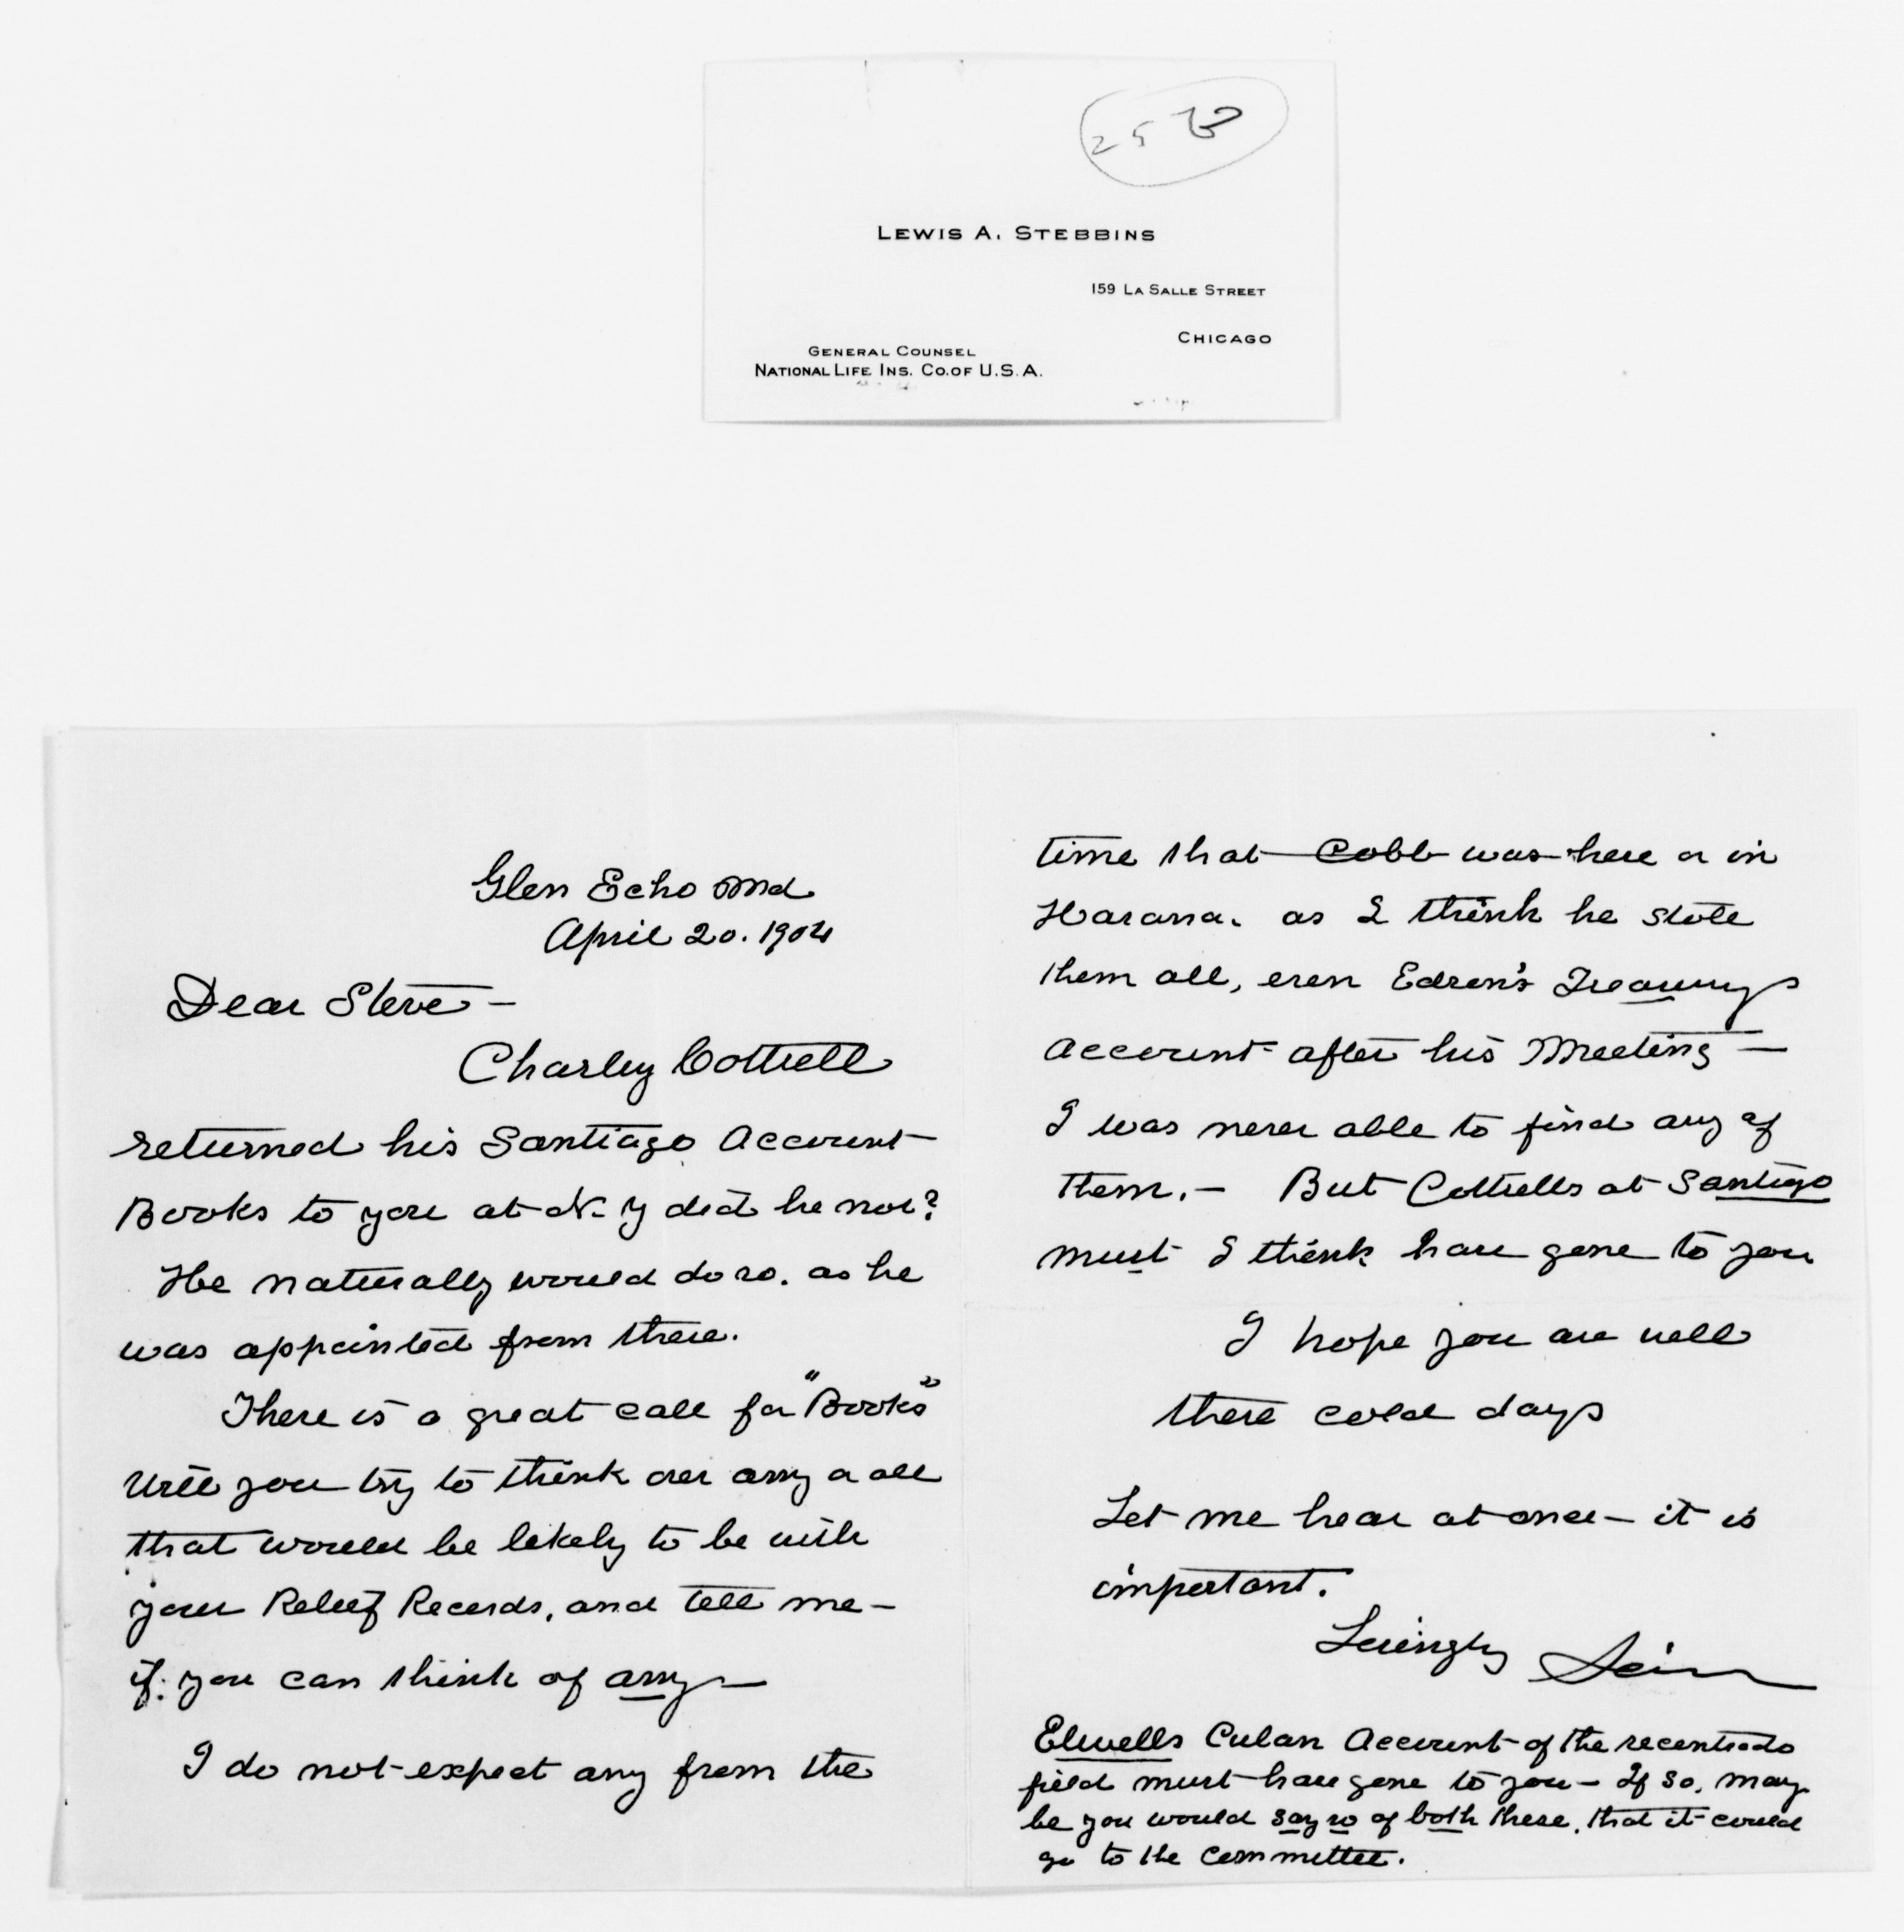 25
LEWIS A. STEBBINS
159 LA SALLE STREET
CHICAGO
GENERAL COUNSEL
NATIONAL LIFE INS. CO. OF U.S.A.
Glen Echo Md
April 20. 1904
Dear Steve -
Charley Cottrell
returned his Santiago Account
Books to you at N- Y did he not?
He naturally would do so. as he
was appointed from there.
There is a great call for "Books"
Will you try to think over any or all
that would be likely to be with
your Relief Records, and tell me -
if you can think of any -
I do not expect any from the
time that Cobb was here or in
Havana. as I think he stole
them all, even Treasury
Account after his Meeting -
I was never able to find any of
them. - But Cottrells at Santigo
must I think have gone to you
I hope you are well
these cold days
Let me hear at once - it is
important.
Lovingly
Elwells Cuban Account of the
field must have gone to you - If so, may
be you would say so of both these, that it could
go to the committee.